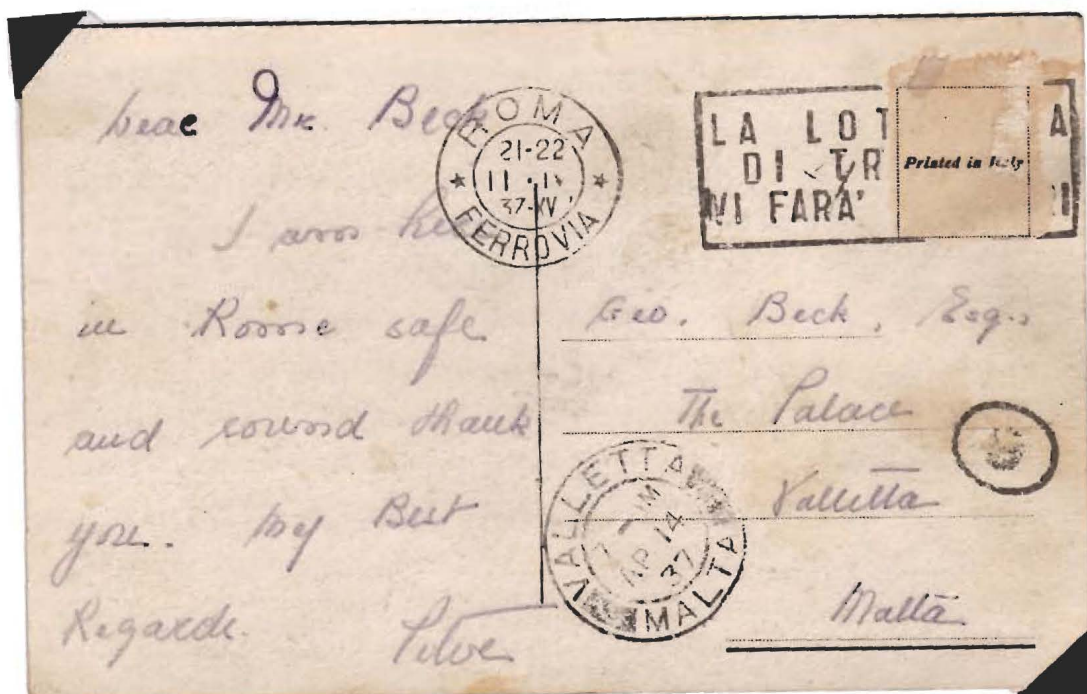 Dear Mr. Beck
I am he
in Rome safe
and sound thank
you. My Best
Regards.
ROMA
21-22
11
37-XV
FERROVIA
LA LOT A
DI TR
VI FARÀ RI
Printed in Italy
Geo. Beck, Esq.
The Palace
Valletta
Malta
VALLETTA
AP 14
37
MALTA